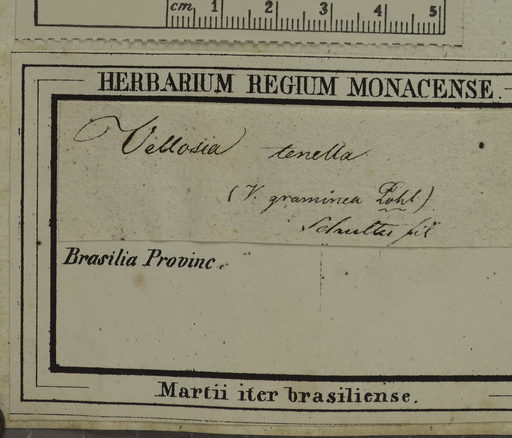 cm 1 2 3 4 5
HERBARIUM REGIUM MONACENSE.
Vellosia tenella
(V. graminea Pohl)
Schultes fil
Brasilia Provinc.
Martii iter brasiliense.